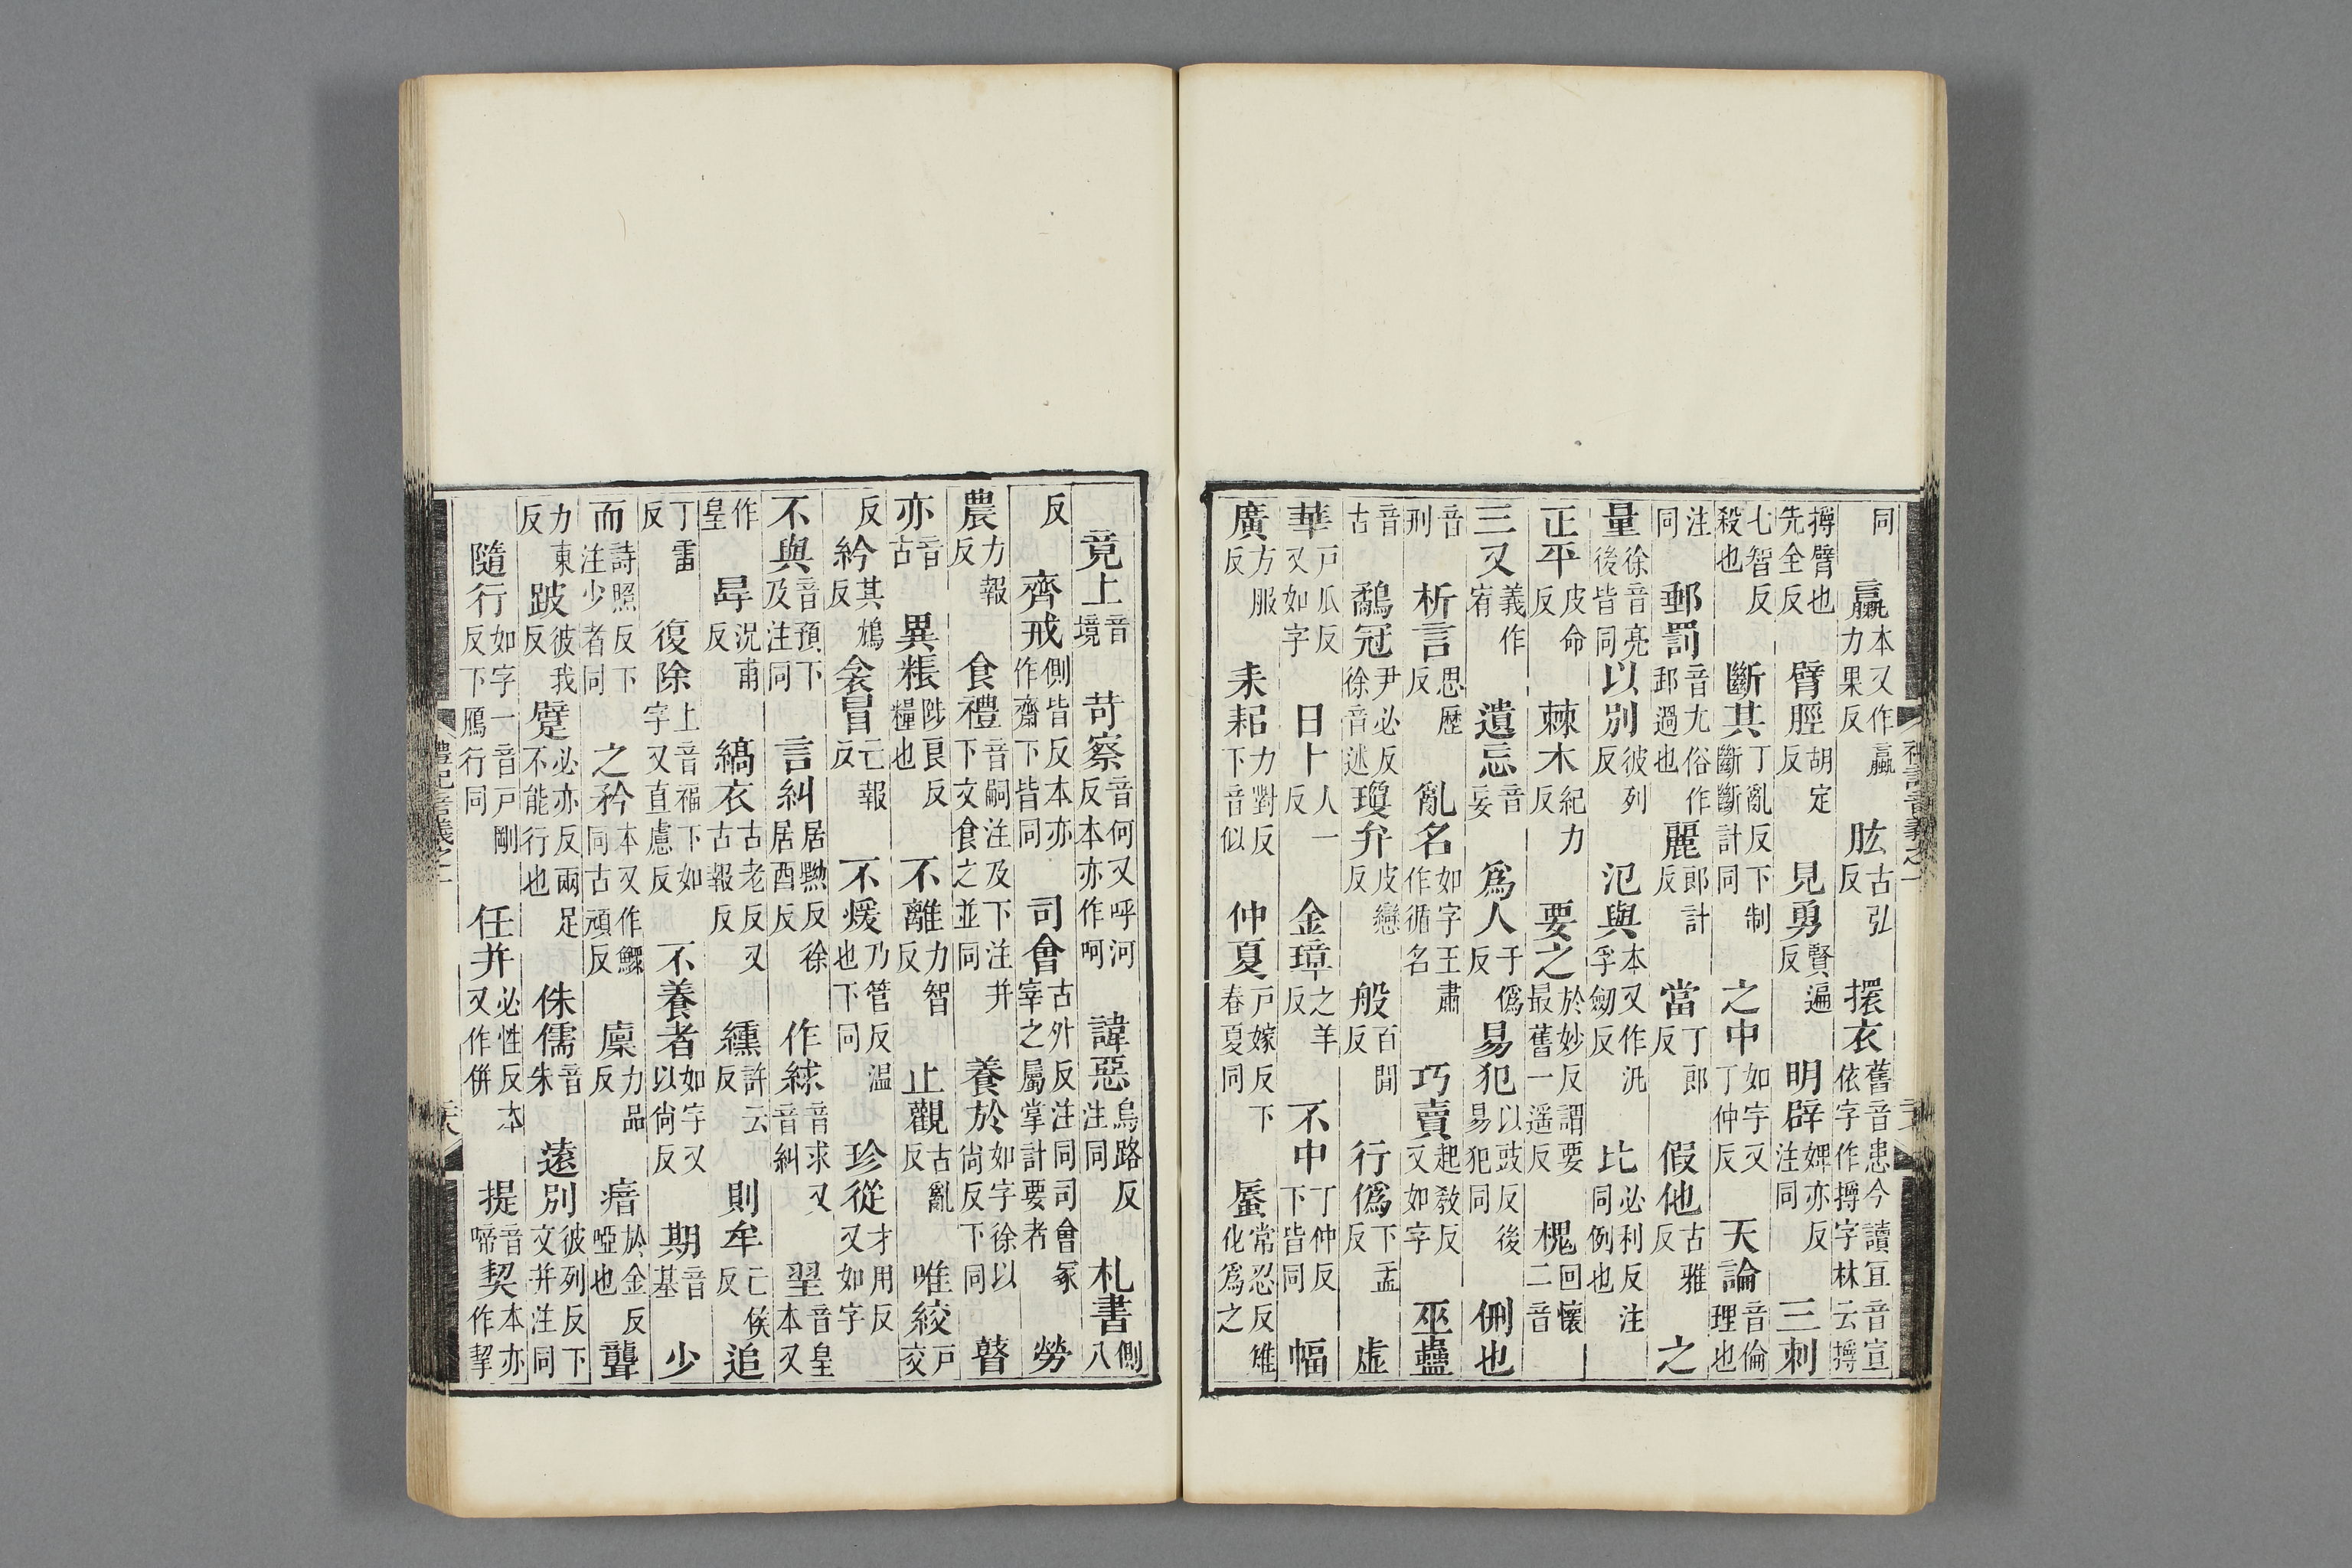 同 臝本又作贏力果反 肱古弘反 擐衣舊音患今讀宜音宣依字作㩳字林云㩳
㩳臂也先全反 臂脛胡定反 見勇賢遍反 明辟婢亦反注同 三刺
七智反殺也 斷其丁亂反下制斷斷計同 之中如字又丁仲反 天論音倫理也
注同 郵罰音尤俗作卸過也 麗郎計反 當丁郎反 假他古雅反 之
量徐音亮後皆同 以別彼列反 氾與本又作汎孚劒反 比必利反注同例也
正平皮命反 棘木紀力反 要之於妙反謂要最舊一遥反 槐回懷二音
三又義作宥 遺忘音妄 爲人于僞反 易犯以豉反後易犯同 侀也
音刑 析言思歷反 亂名如字王肅作循名 巧賣起敎反又如字 巫蠱
音古 鷸冠尹必反徐音述 瓊弁皮戀反 般百閒反 行僞下孟反 虛
華戸瓜反又如字 日十人一反 金璋之羊反 不中丁仲反下皆同 幅
廣方服反 耒耜力對反下音似 仲夏戸嫁反下春夏同 蜃常忍反雉化爲之
竟上音境 苛察音何又呼河反本亦作呵 諱惡烏路反注同 札書側八
反 齊戒側皆反本亦作齋下皆同 司會古外反注同司會冢宰之屬掌計要者 勞
農力報反 食禮音嗣注及下注并下文食之並同 養於如字徐以尙反下同 瞽
亦音古 異粻陟良反糧也 不離力智反 止觀古亂反 唯絞戸交
反 紟其鴆反 衾冒亡報反 不煖乃管反温也下同 珍從才用反又如字
不與音預下及注同 言糾居黝反徐居酉反 作絿音求又音糾 翌音皇本又
作皇 冔況甫反 縞衣古老反又古報反 纁許云反 則牟亡侯反 追
丁雷反 復除上音福下如字又直慮反 不養者如字又以尙反 期音基 少
而詩照反下注少者同 之矜本又作鰥同古頑反 廩力品反 瘖於金反啞也 聾
力東反 跛彼我反 躄必亦反兩足不能行也 侏儒音朱 遠別彼列反下文并注同
隨行如字一音戸剛反下鴈行同 任并必性反本又作併 提音啼 契本亦作挈